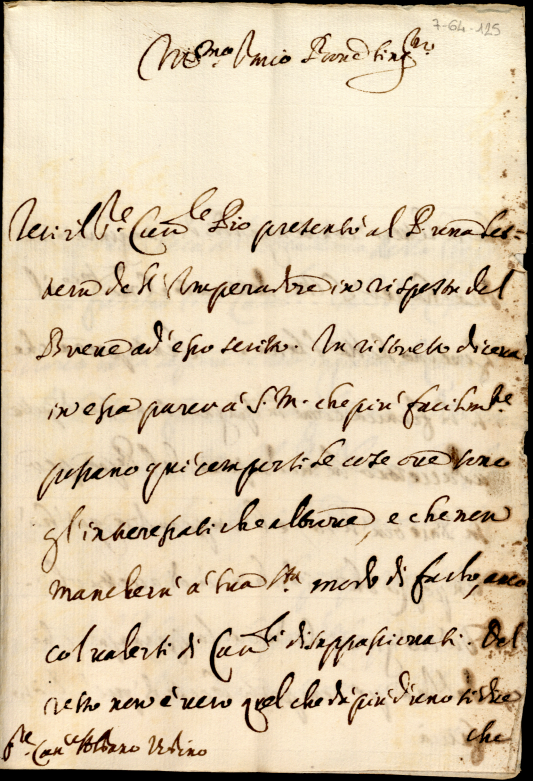 7-64-125
Ill.mo Sig.r Pron
Ieri il S.re Car.le Pio presentò al P. una let=
tera dell' Imperadore in risposta del
Breve ad esso scritto. In ristretto diceva
in essa parer à S. M. che più facilm.te
possano quì comporsi le cose ove sono
gl'interessati che altrove, e che non
mancherà à Sua S.tà modo di farlo, anco
col valersi di Car.li disappassionati. Del
resto non è vero quel che di più d'uno si dice
che
S.re Can.co Albano Urbino